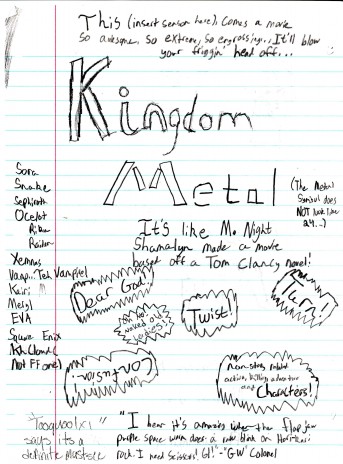 This (insert season here), comes a movie
so awesome, so extreme, so engrossing... It'll blow
your friggin' head off...
Kingdom
Metal
(The Metal
Symbol does
NOT look like
a 4...)
It's like M. Night
Shamalyn made a movie
based off a Tom Clancy novel!
Sora
Snake
Sephiroth
Ocelot
Riku
Raiden
Xemnas
Vamp
Kairi
Meryl
EVA
Square Enix
Kh Cloud (
Not FF one)
Dear God!
naked
ladies!
Twist!
Turn!
Confusion!
Non-stop
action, killing adventure
and
Characters!
says its a
definite mustsee
"I hear it's amazing when the
purple space worm does a
rock. I need scissors! 61!"-"GW" Colonel